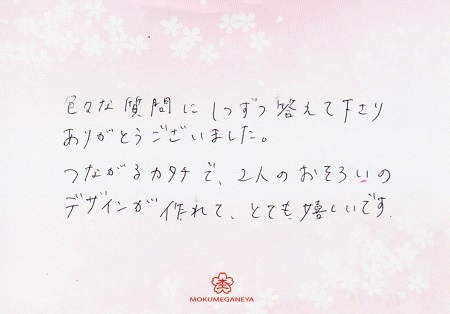 色々な質問に1つずつ答えて下さり
ありがとうございました。
つながるカタチで、2人のおそろいの
デザインが作れて、とても嬉しいです.
MOKUMEGANEYA